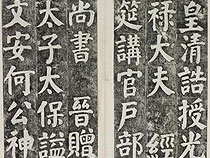 皇清誥授光
祿大夫經
筵講官戶部
尚書晉贈
太子太保謚
文安何公神